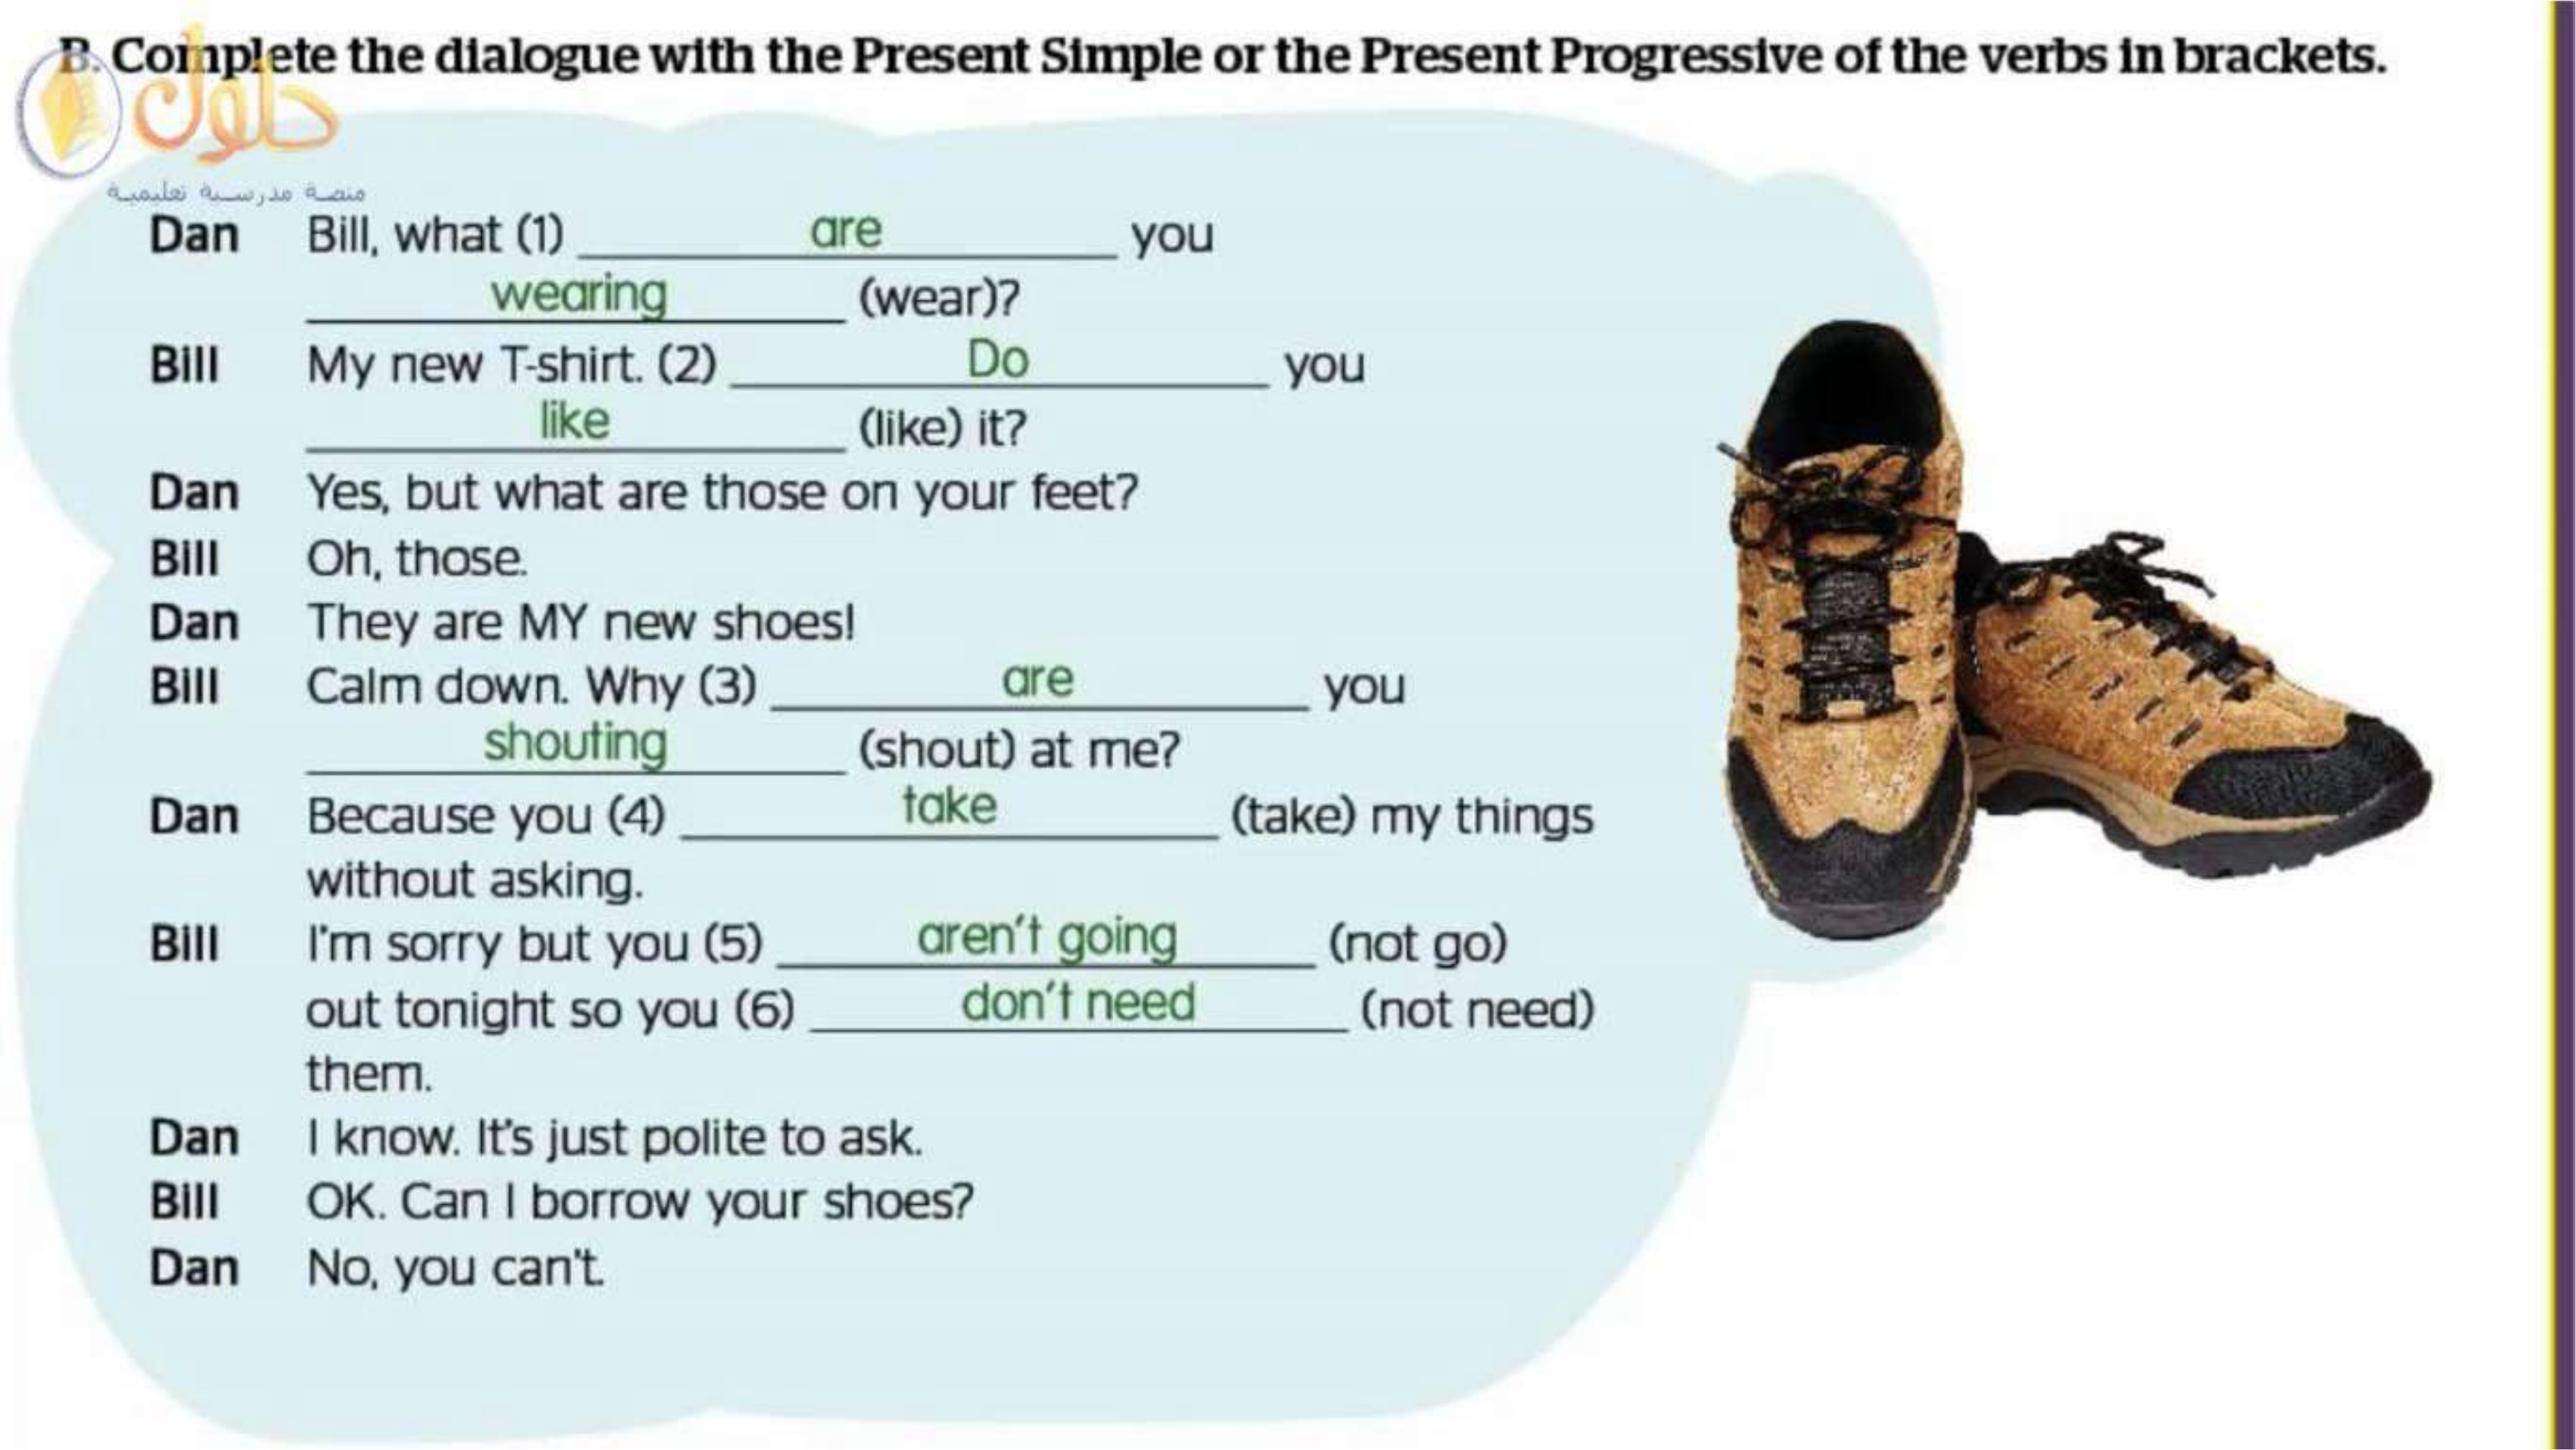 B. Complete the dialogue with the Present Simple or the Present Progressive of the verbs in brackets.
حلول
منصة مدرسية تعليمية
Dan Bill, what (1) are you
wearing (wear)?
Bill My new T-shirt. (2) Do you
like (like) it?
Dan Yes, but what are those on your feet?
Bill Oh, those.
Dan They are MY new shoes!
Bill Calm down. Why (3) are you
shouting (shout) at me?
Dan Because you (4) take (take) my things
without asking.
Bill I'm sorry but you (5) aren't going (not go)
out tonight so you (6) don't need (not need)
them.
Dan I know. It's just polite to ask.
Bill OK. Can I borrow your shoes?
Dan No, you can't.